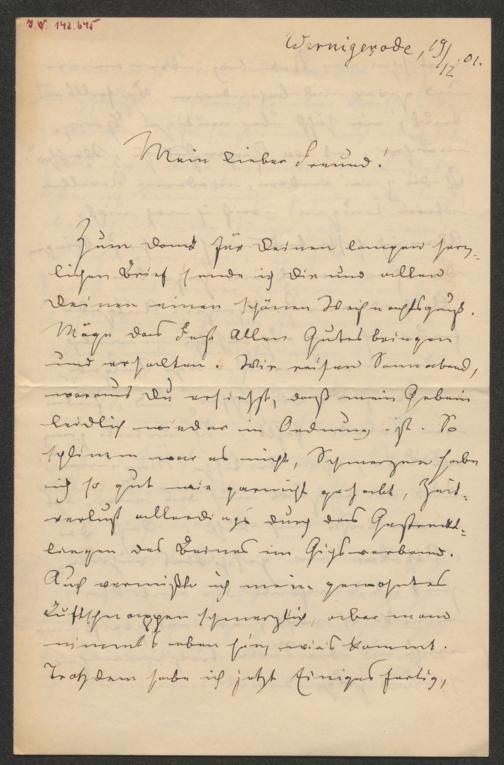 J. N. 142.645
Wernigerode, 19/12.01.
Mein lieber Freund!
Zum Dank für Deinen langen herz-
lichen Brief sende ich Dir und allen
Deinen einen schönen Weihnachtsgruß.
Möge das Fest Allen Gutes bringen
und erhalten. Wir reisen Sonnabend,
woraus Du ersiehst, daß mein Gebein
leidlich wieder in Ordnung ist. So
schlimm war es nicht, Schmerzen habe
ich so gut wie garnicht gehabt, Zeit-
verlust allerdings durch das Gestreckt-
liegen des Beines im Gipsverband.
Auch vermißte ich mein gewohntes
Luftschnappen schmerzlich, aber man
nimmt's eben hin, wie's kommt.
Trotzdem habe ich jetzt Einiges fertig,